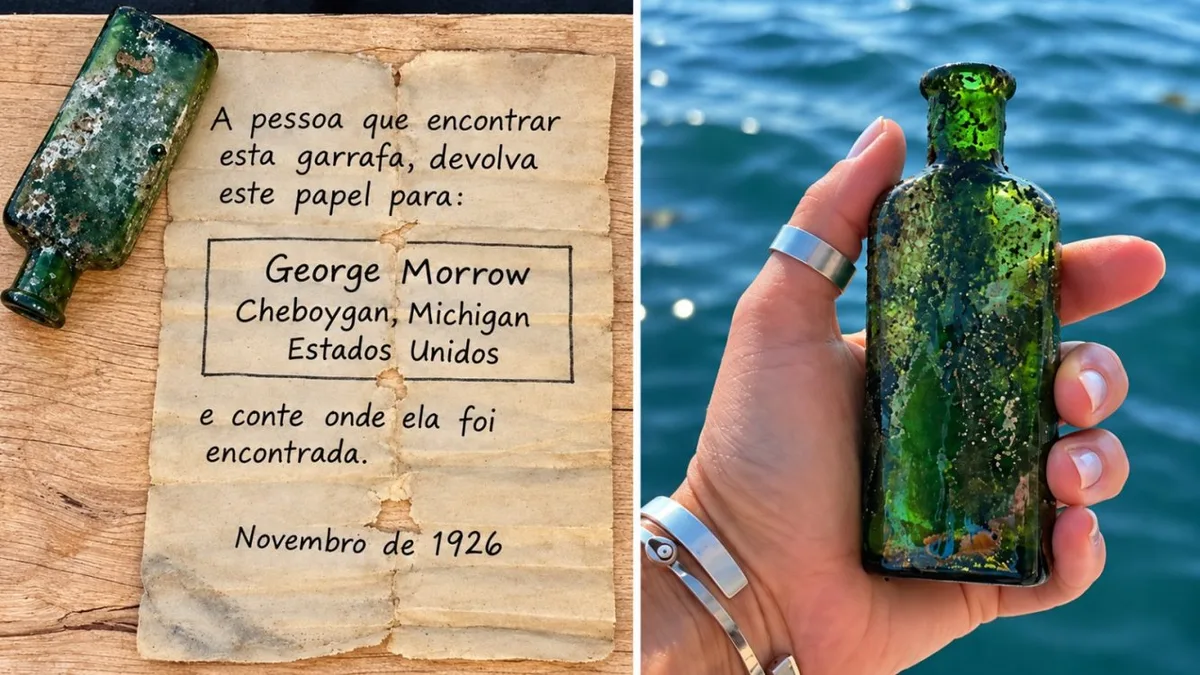 A pessoa que encontrar
esta garrafa, devolva
este papel para:
George Morrow
Cheboygan, Michigan
Estados Unidos
e conte onde ela foi
encontrada.
Novembro de 1926